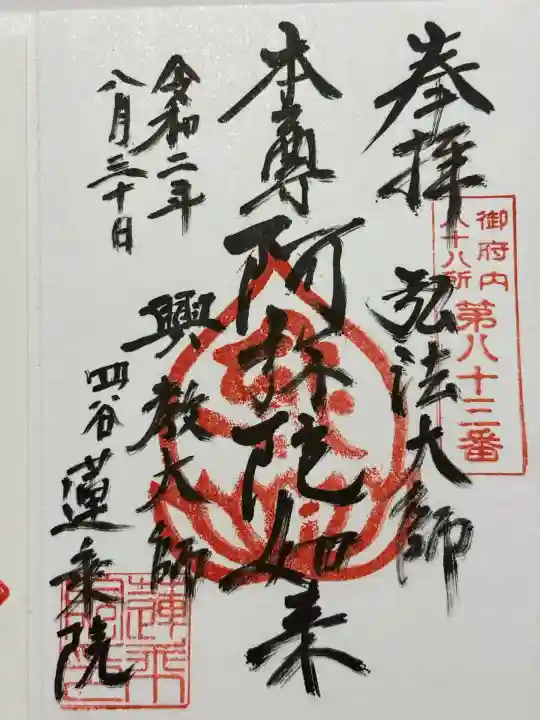 奉拝
御府内
八十八所
第八十三番
弘法大師
本尊阿弥陀如来
興教大師
令和二年
八月三十日
四谷蓮乗院